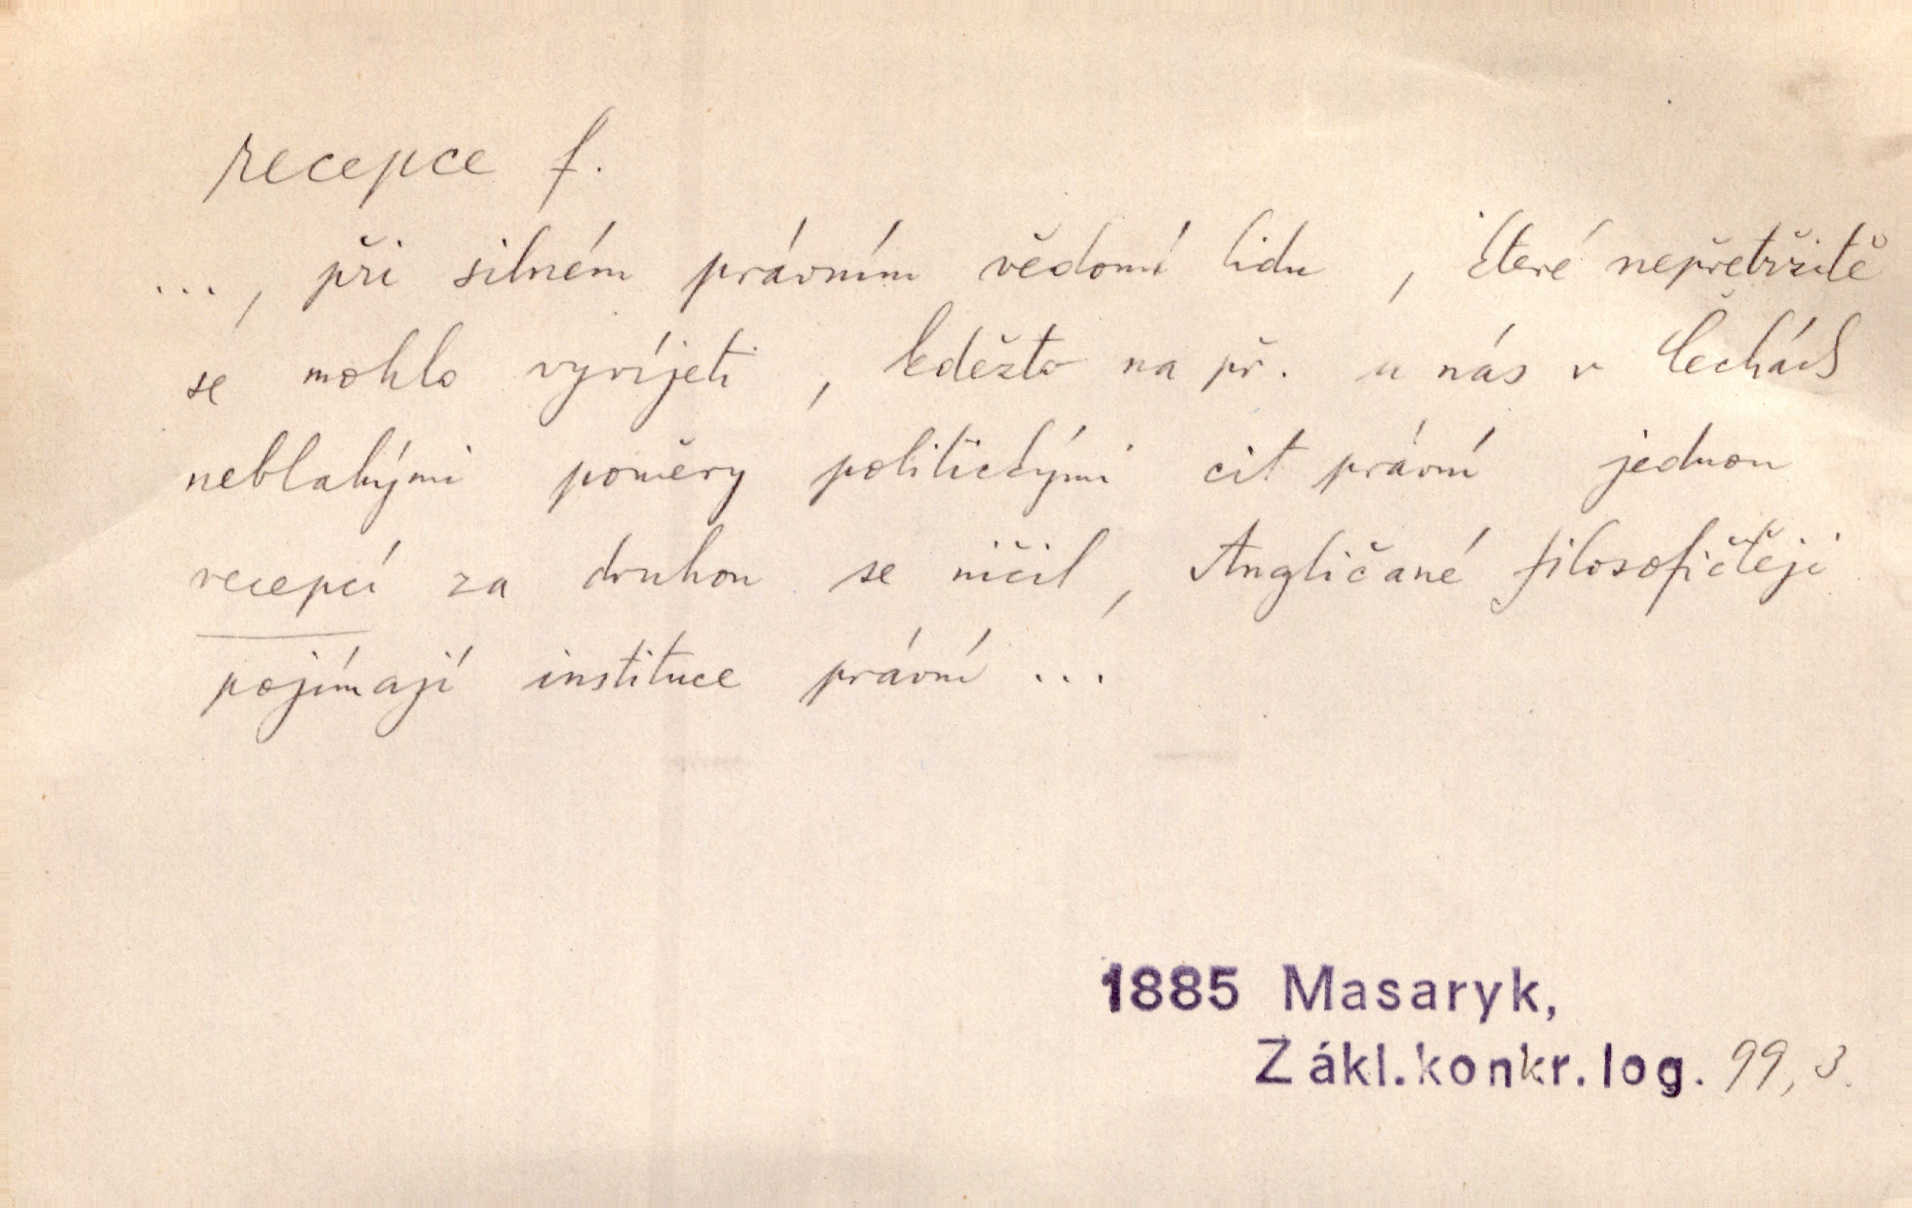 recepce f.
..., při silném právním vědomí lidu, které nepřetržitě
se mohlo vyvíjeti, kdežto na př. u nás v Čechách
neblahými poměry politickými cit právní jednou
recepcí za druhou se ničil, Angličané filosofičtěji
pojímají instituce právní ...
1885 Masaryk,
Zákl.konkr.log. 99, 3.